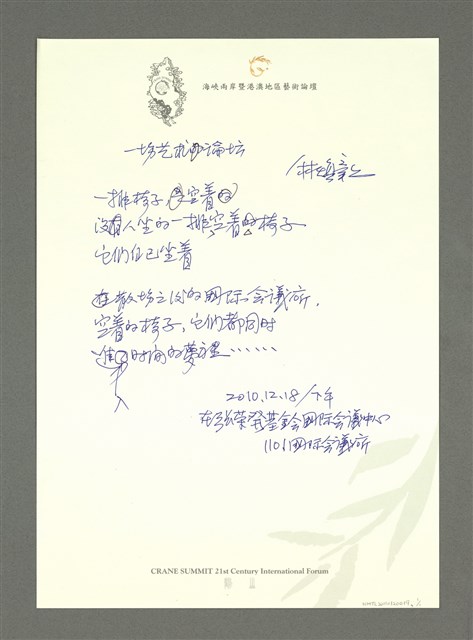 海峽兩岸暨港澳地區藝術論壇
一场艺术论坛
林煥彰
一排椅子空着
没有人坐的一排空着的椅子
它們自己坐着
在散场之後的国际会議所,
空着的椅子,它們都同时
進入时间的夢裡……
2010.12.18/下午
在張榮發基金会国际会議中心
1101国际会議所
CRANE SUMMIT 21st Century International Forum